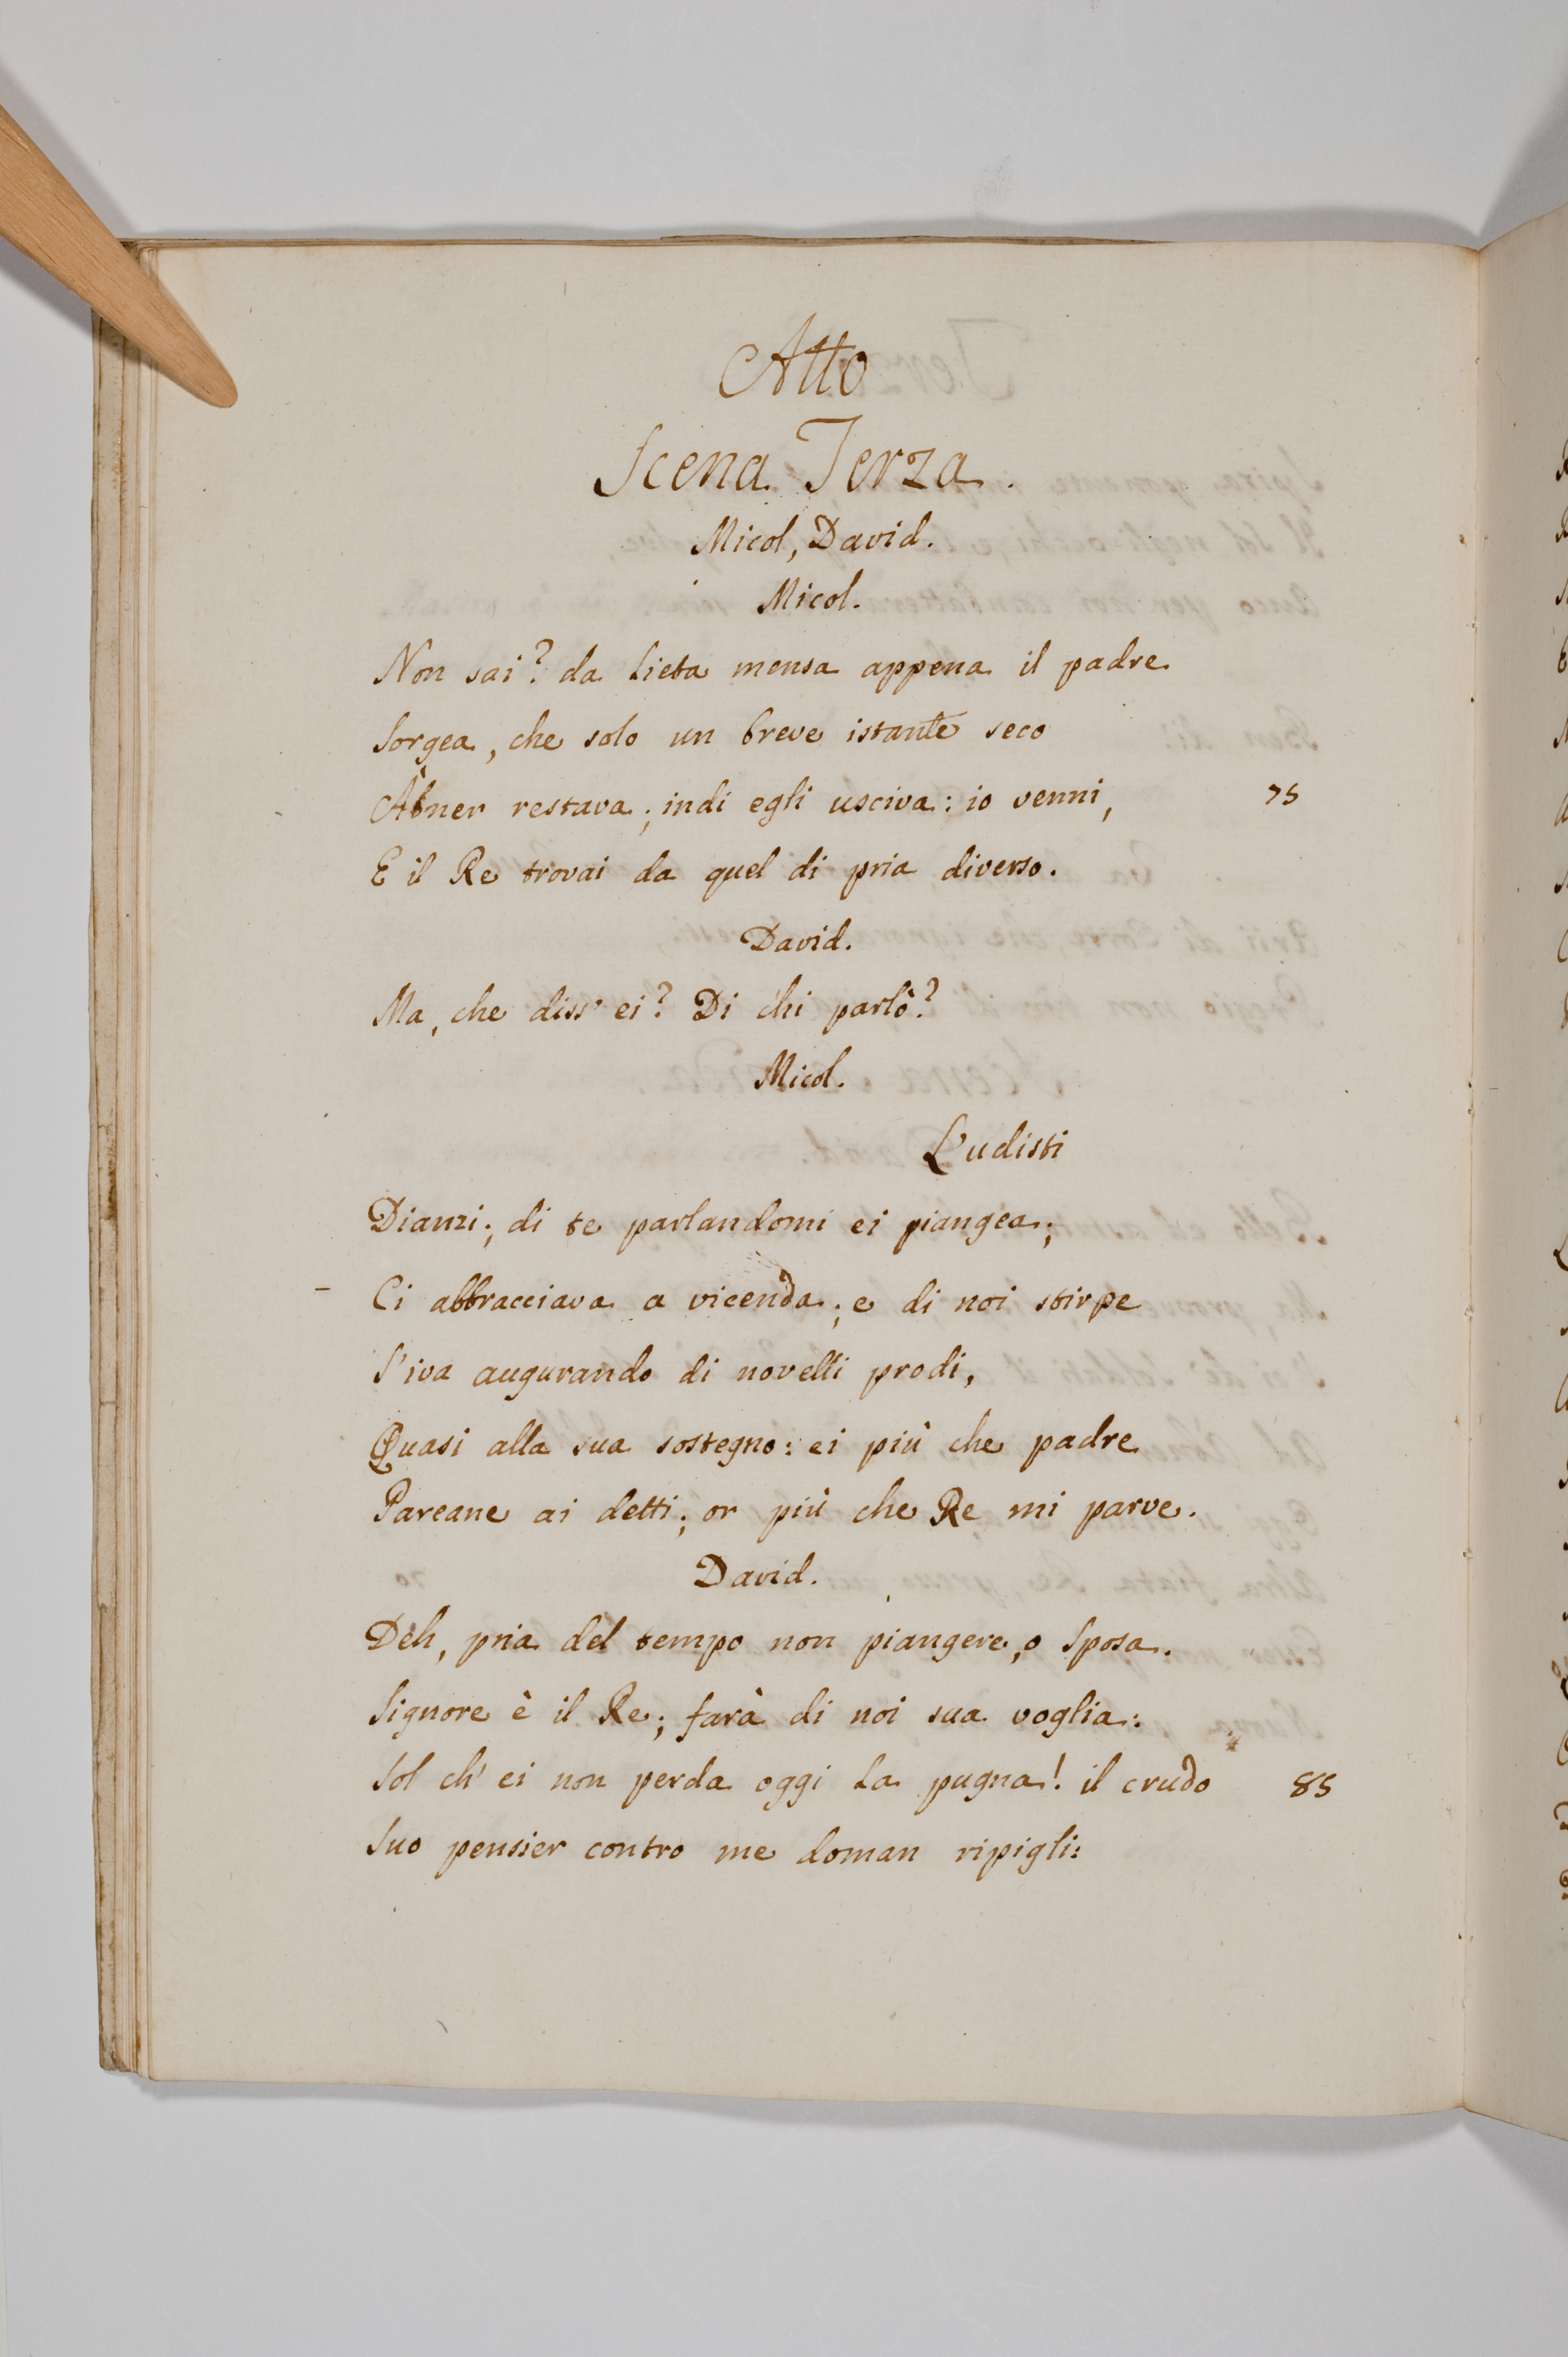 Atto
Scena Terza.
Micol, David.
Micol.
Non sai? da lieta mensa appena il padre
Sorgea, che solo un breve istante seco
Abner restava; indi egli usciva: io venni,
75
E il Re trovai da quel di pria diverso.
David.
Ma, che diss' ei? Di chi parlò?
Micol.
L'udisti
Dianzi; di te parlandomi ei piangea;
Ci abbracciava a vicenda; e di noi stirpe
S'iva augurando di novelli prodi,
Quasi alla sua sostegno: ei più che padre
Pareane ai detti; or più che Re mi parve.
David.
Deh, pria del tempo non piangere, o Sposa.
Signore è il Re; farà di noi sua voglia:
Sol ch' ei non perda oggi la pugna! il crudo
85
Suo pensier contro me doman ripigli: